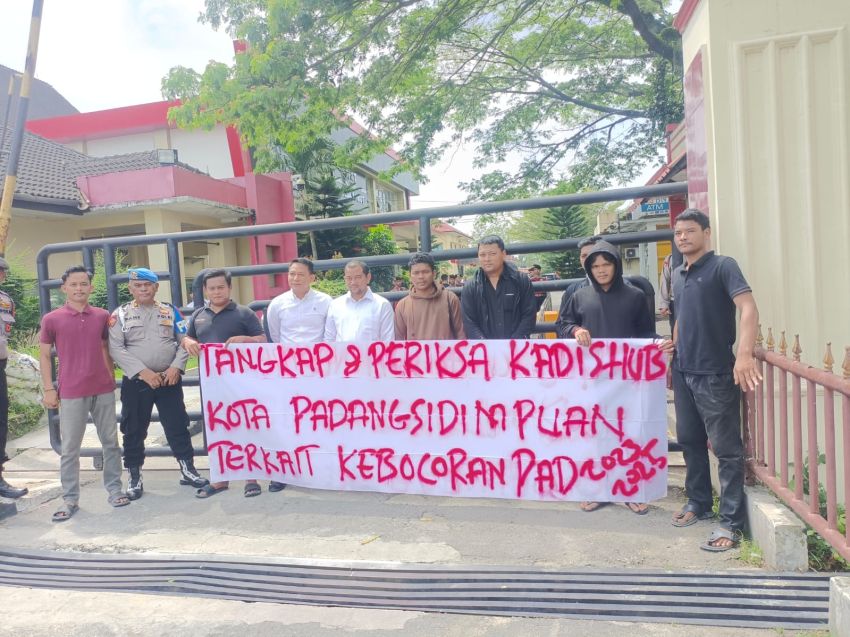 ATM
TANGKAP & PERIKSA KADISHUB
KOTA PADANGSIDIMPUAN
TERKAIT KEBOCORAN PAD